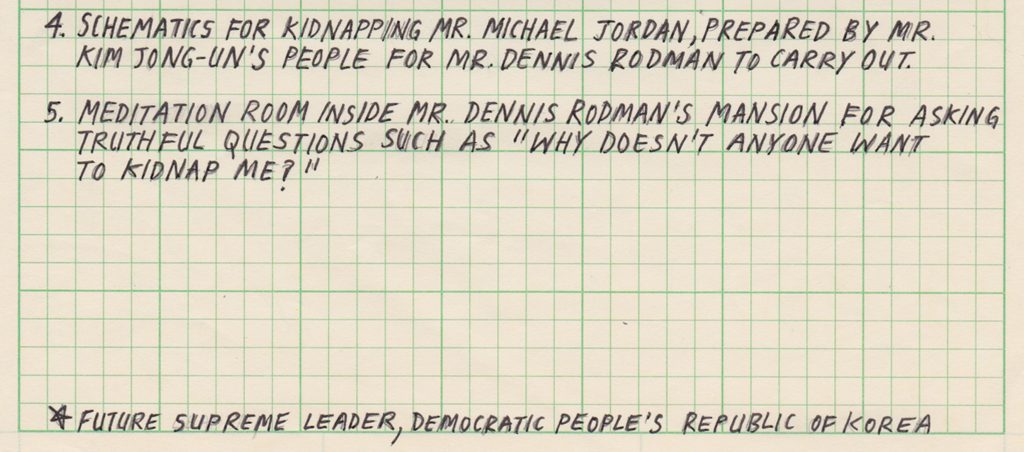 4. SCHEMATICS FOR KIDNAPPING MR. MICHAEL JORDAN, PREPARED BY MR.
KIM JONG-UN'S PEOPLE FOR MR. DENNIS RODMAN TO CARRY OUT.
5. MEDITATION ROOM INSIDE MR. DENNIS RODMAN'S MANSION FOR ASKING
TRUTHFUL QUESTIONS SUCH AS "WHY DOESN'T ANYONE WANT
TO KIDNAP ME?"
* FUTURE SUPREME LEADER, DEMOCRATIC PEOPLE'S REPUBLIC OF KOREA